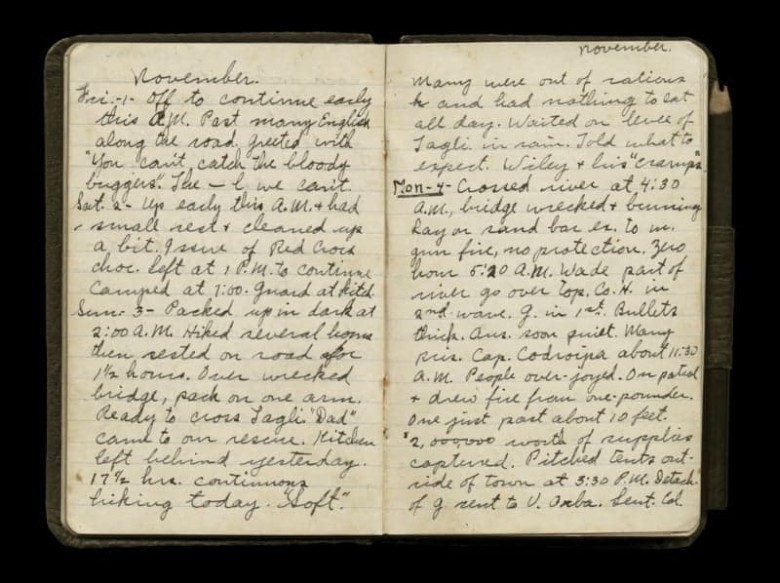 November.
Fri.-1- Off to continue early
this A.M. Past many English
along the road. Greeted with
"You can't catch the bloody
buggers". The — l we can't.
Sat. 2- Up early this A.M. + had
small rest + cleaned up
a bit. Issue of Red Cross
choc. Left at 1 P.M. to continue
Camped at 7:00. Guard at kitch.
Sun. 3- Packed up in dark at
2:00 A.M. Hiked several hours
then rested on road for
1½ hours. Over wrecked
bridge, pack on one arm.
Ready to cross Tagli. "Dad"
came to our rescue. Kitchen
left behind yesterday.
17½ hrs. continuous
hiking today. "Soft".
November.
Many were out of rations
and had nothing to eat
all day. Waited on levee of
Tagli. in rain. Told what to
expect. Wiley + his "cramps".
Mon-4- Crossed river at 4:30
A.M., bridge wrecked + burning
Lay on sand bar ex. to m.
gun fire, no protection. Zero
hour 5:20 A.M. Wade part of
river go over top. Co. H. in
2nd wave. G. in 1st. Bullets
thick. Aus. soon quiet. Many
pris. Cap. Codroipa about 11:30
A.M. People over-joyed. On patrol
+ drew fire from one-pounder.
One just past about 10 feet.
2,000,000 worth of supplies
captured. Pitched tents out-
side of town at 3:30 P.M. Detach.
of G sent to V. Orba. Sent. Col.